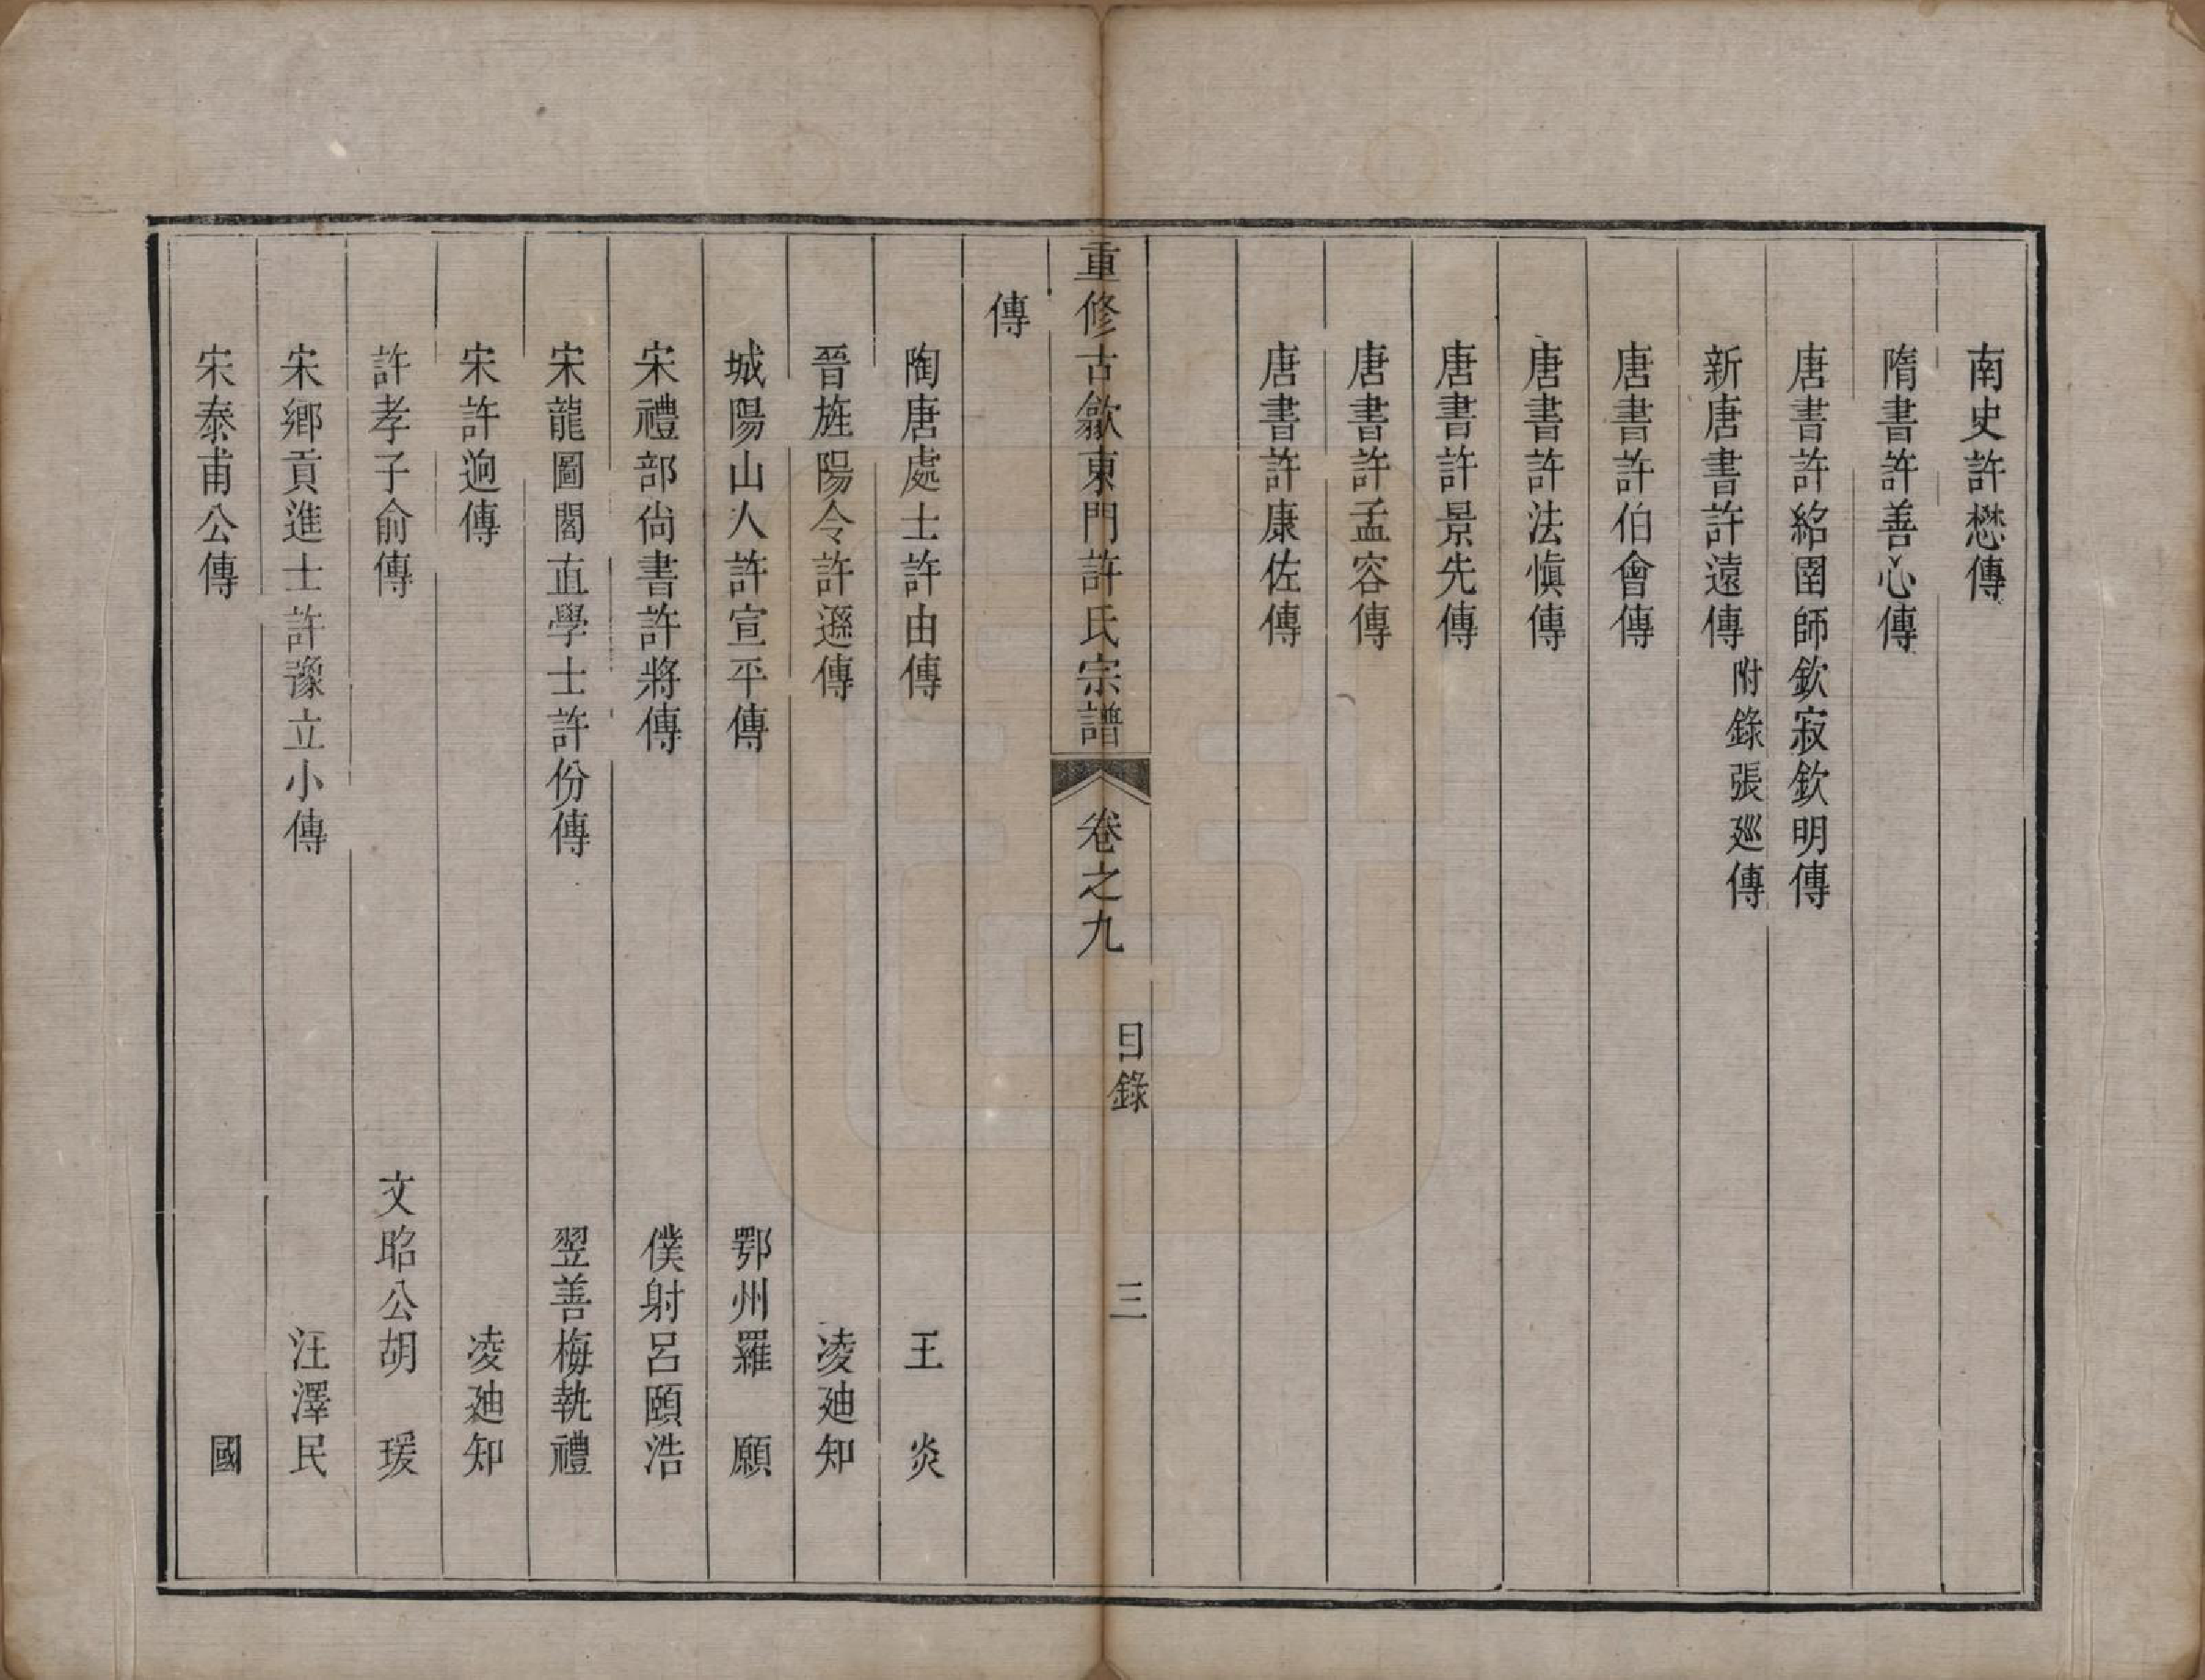 南史許懋傳
隋書許善心傳
唐書許紹圉師欽寂欽明傳
新唐書許遠傳附錄張巡傳
唐書許伯會傳
唐書許法慎傳
唐書許景先傳
唐書許孟容傳
唐書許康佐傳
重修古歙東門許氏宗譜 卷之九 目錄 三
傳
陶唐處士許由傳 王炎
晉旌陽令許遜傳 凌廸知
城陽山人許宣平傳 鄂州羅願
宋禮部尚書許將傳 僕射呂頤浩
宋龍圖閣直學士許份傳 翌善梅執禮
宋許逈傳 凌廸知
許孝子俞傳 文昭公胡瑗
宋鄉貢進士許豫立小傳 汪澤民
宋泰甫公傳 國